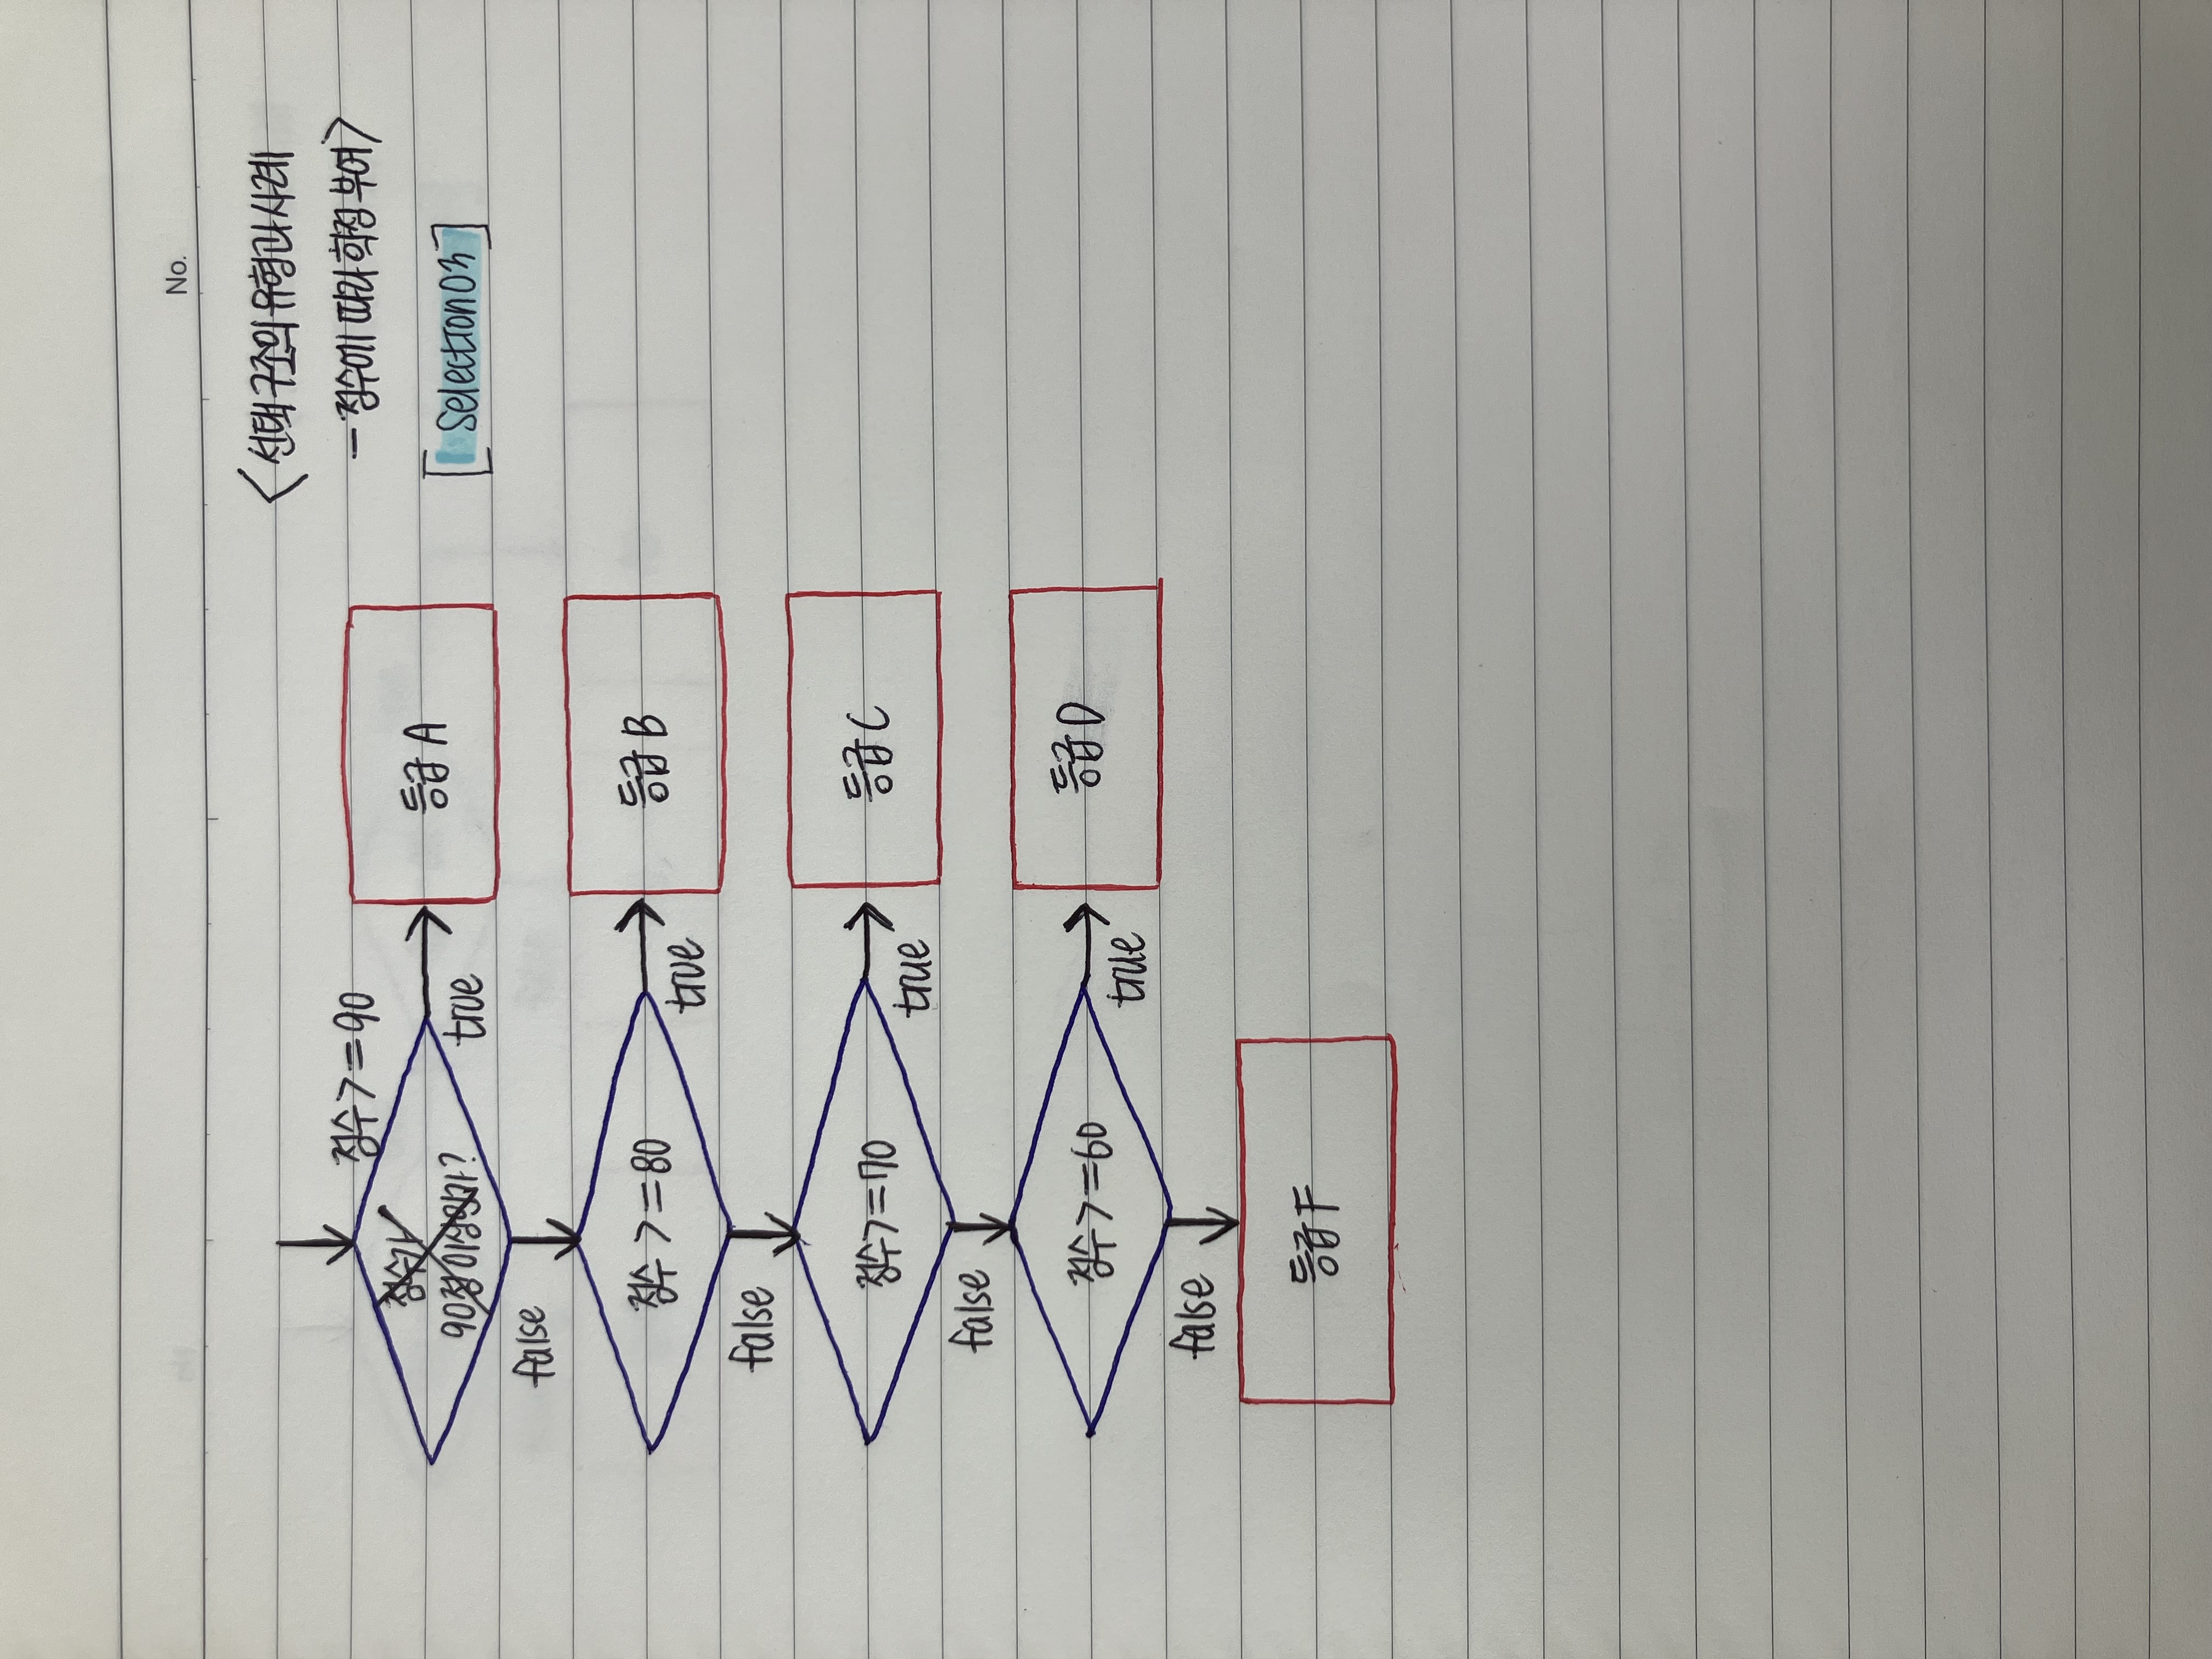 No.
<선택구조의 유형과 사례
- 점수에 따라 학점 부여>
[Selection03]
점수>=90
점수가
90점 이상인가?
true
등급 A
false
점수>=80
true
등급 B
false
점수>=70
true
등급 C
false
점수>=60
true
등급 D
false
등급 F